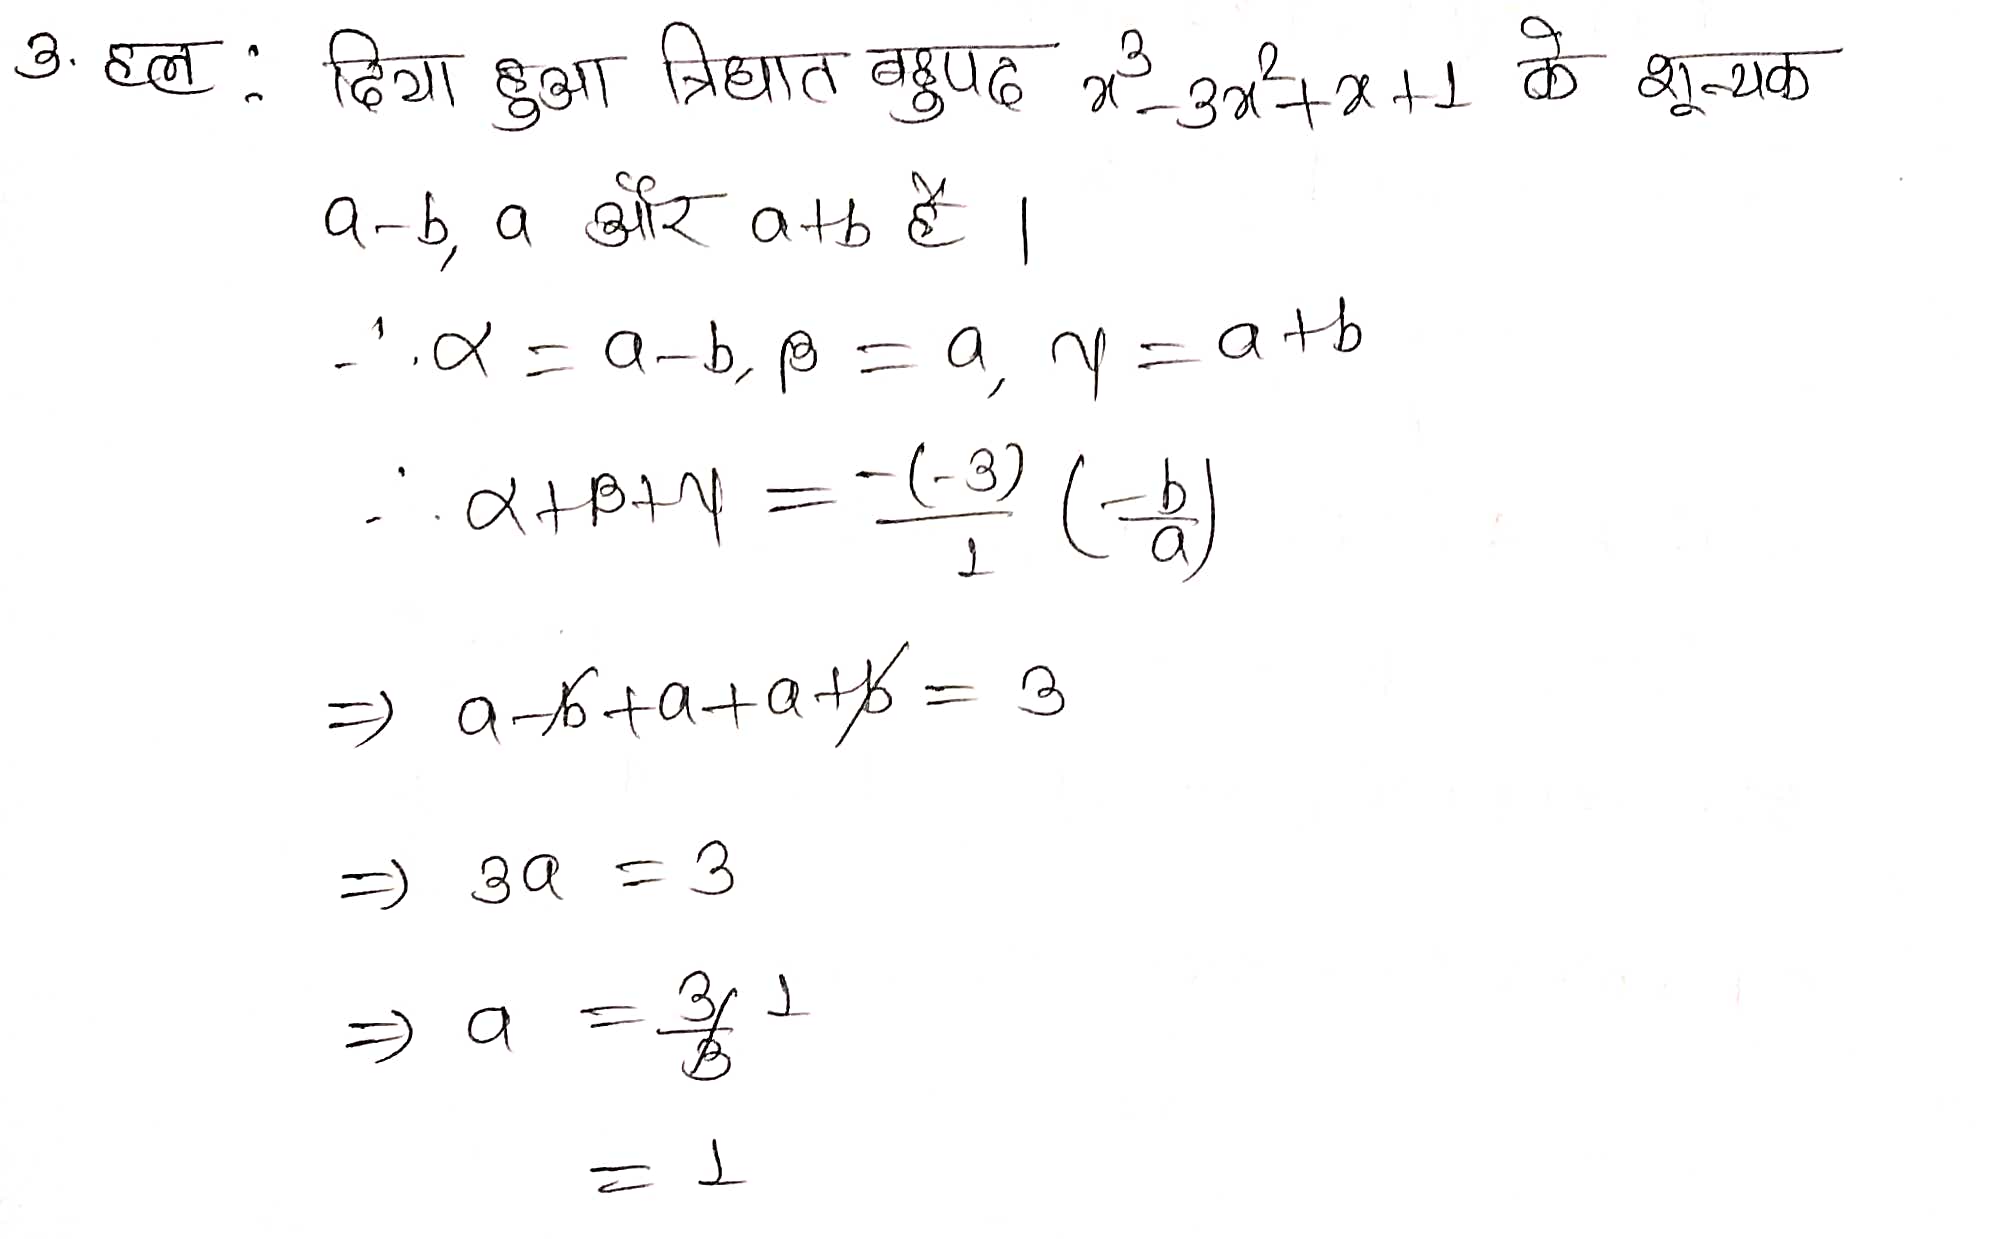 3. हल : दिया हुआ त्रिघात बहुपद x³-3x²+x+1 के शून्यक
a-b, a और a+b हैं |
∴ α = a-b, β = a, γ = a+b
∴ α+β+γ = -(-3)/1 (-b/a)
⇒ a-b+a+a+b = 3
⇒ 3a = 3
⇒ a = 3/3 1
= 1